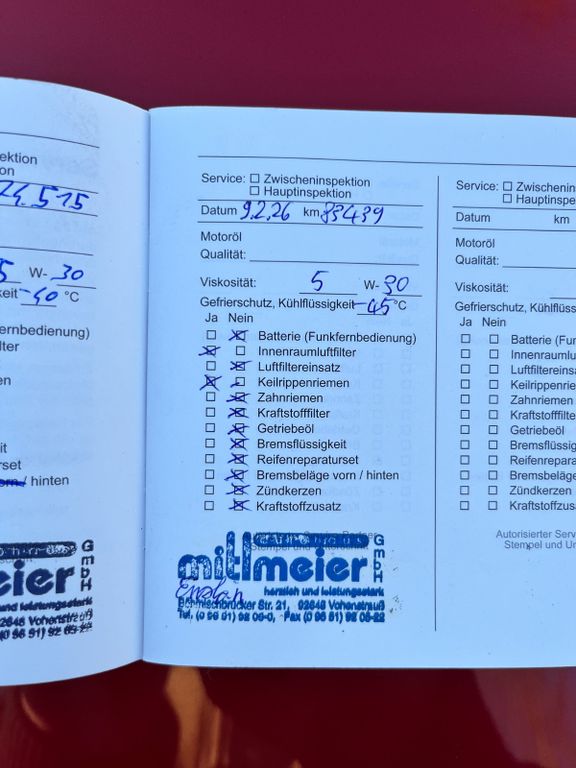 ektion
on
5 W- 30
keit -40 °C
ernbedienung)
lter
en
it
rset
vorn / hinten
meier GmbH
und leistungsstark
Service: ☐ Zwischeninspektion
☐ Hauptinspektion
Datum 9.2.26 km 83439
Motoröl
Qualität:
Viskosität: 5 W- 30
Gefrierschutz, Kühlflüssigkeit -45 °C
Ja Nein
☐ ☒ Batterie (Funkfernbedienung)
☒ ☐ Innenraumluftfilter
☐ ☒ Luftfiltereinsatz
☒ ☐ Keilrippenriemen
☐ ☒ Zahnriemen
☐ ☒ Kraftstofffilter
☐ ☒ Getriebeöl
☐ ☒ Bremsflüssigkeit
☐ ☒ Reifenreparaturset
☐ ☒ Bremsbeläge vorn / hinten
☐ ☒ Zündkerzen
☐ ☒ Kraftstoffzusatz
mitlmeier GmbH
herzlich und leistungsstark
Böhmischbrucker Str. 21, 92648 Vohenstrauß
Tel. (0 96 51) 92 05-0, Fax (0 96 51) 92 05-22
Service: ☐ Zwischenin
☐ Hauptinspe
Datum km
Motoröl
Qualität:
Viskosität:
Gefrierschutz, Kühlflüss
Ja Nein
☐ ☐ Batterie (Fu
☐ ☐ Innenraumlu
☐ ☐ Luftfiltereins
☐ ☐ Keilrippenrie
☐ ☐ Zahnriemen
☐ ☐ Kraftstofffilte
☐ ☐ Getriebeöl
☐ ☐ Bremsflüssi
☐ ☐ Reifenrepar
☐ ☐ Bremsbeläg
☐ ☐ Zündkerzen
☐ ☐ Kraftstoffzus
Autorisierter Servi
Stempel und Un